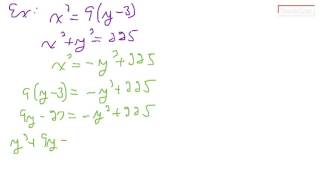 Ex: x² = 9(y-3)
x²+y² = 225
x² = -y²+225
9(y-3) = -y²+225
9y-27 = -y²+225
y²+9y-